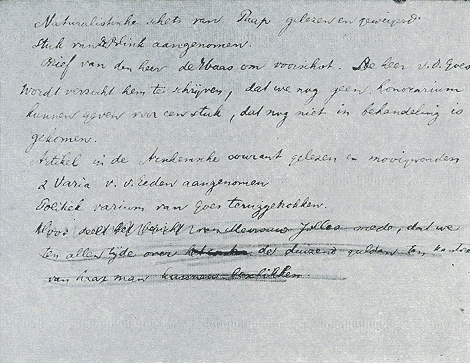 Naturalistische schets van Paap gelezen en geweigerd
Stuk van d. Hink aangenomen.
Brief van den heer de Haas om voorschot. De heer v.d. Goes
wordt verzocht hem te schrijven, dat we nog geen honorarium
kunnen geven voor een stuk, dat nog niet in behandeling is
gekomen.
Artikel in de Arnhemsche courant gelezen en mooi gevonden
2 Varia v. v. Eeden aangenomen
Politiek varium van Goes teruggetrokken.
Voor deelt het bericht van Mevrouw Jolles mede, dat we
ten allen tijde over de duizend gulden ten kantore
van haar man kunnen beschikken